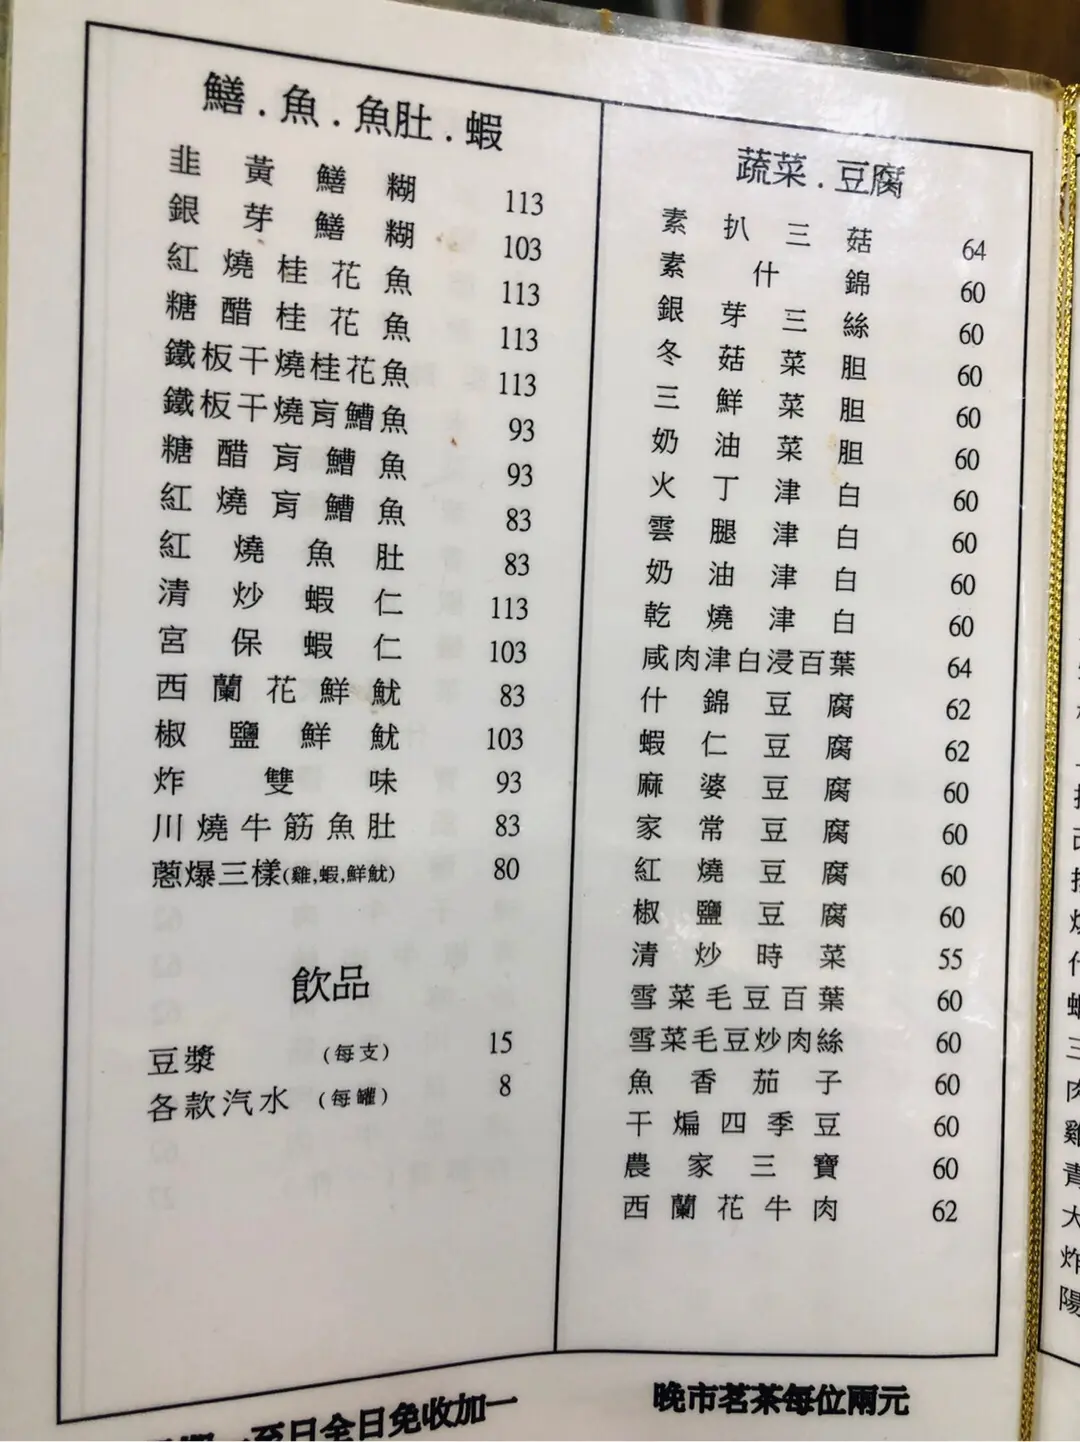 鱔.魚.魚肚.蝦
韭黃鱔糊 113
銀芽鱔糊 103
紅燒桂花魚 113
糖醋桂花魚 113
鐵板干燒桂花魚 113
鐵板干燒肓鰽魚 93
糖醋肓鰽魚 93
紅燒肓鰽魚 83
紅燒魚肚 83
清炒蝦仁 113
宮保蝦仁 103
西蘭花鮮魷 83
椒鹽鮮魷 103
炸雙味 93
川燒牛筋魚肚 83
蔥爆三樣(雞,蝦,鮮魷) 80
飲品
豆漿 (每支) 15
各款汽水 (每罐) 8
至日全日免收加一
蔬菜.豆腐
素扒三菇 64
素什錦 60
銀芽三絲 60
冬菇菜胆 60
三鮮菜胆 60
奶油菜胆 60
火丁津白 60
雲腿津白 60
奶油津白 60
乾燒津白 60
咸肉津白浸百葉 64
什錦豆腐 62
蝦仁豆腐 62
麻婆豆腐 60
家常豆腐 60
紅燒豆腐 60
椒鹽豆腐 60
清炒時菜 55
雪菜毛豆百葉 60
雪菜毛豆炒肉絲 60
魚香茄子 60
干煸四季豆 60
農家三寶 60
西蘭花牛肉 62
晚市茗茶每位兩元